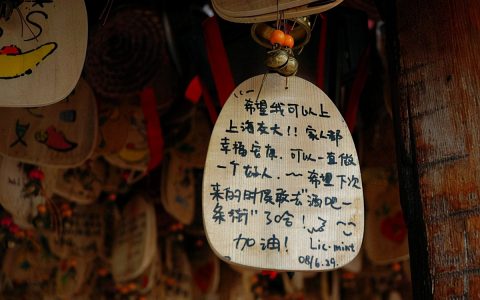 希望我可以上
上海交大!! 家人都
幸福安康. 可以一直做
一个好人. ~~ 希望下次
来的时候敢去"酒吧一
条街"了哈! ~~
加油! Lic-mint
08/6.29.